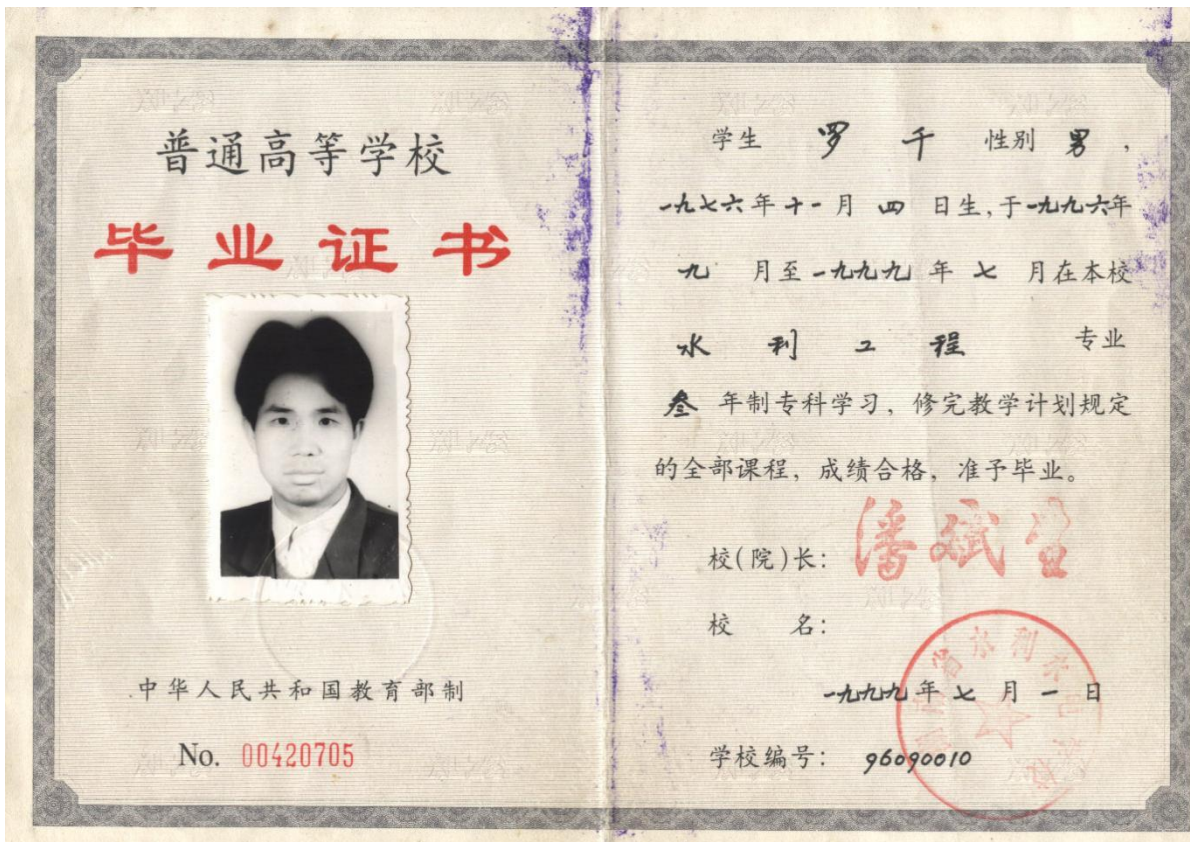 普通高等学校
毕业证书
中华人民共和国教育部制
No. 00420705
学生 罗千 性别 男,
一九七六年十一月四日生,于一九九六年
九月至一九九九年七月在本校
水利工程 专业
叁年制专科学习,修完教学计划规定
的全部课程,成绩合格,准予毕业。
校(院)长: 潘斌
校 名:
一九九九年七月一日
学校编号: 96090010
省水利水